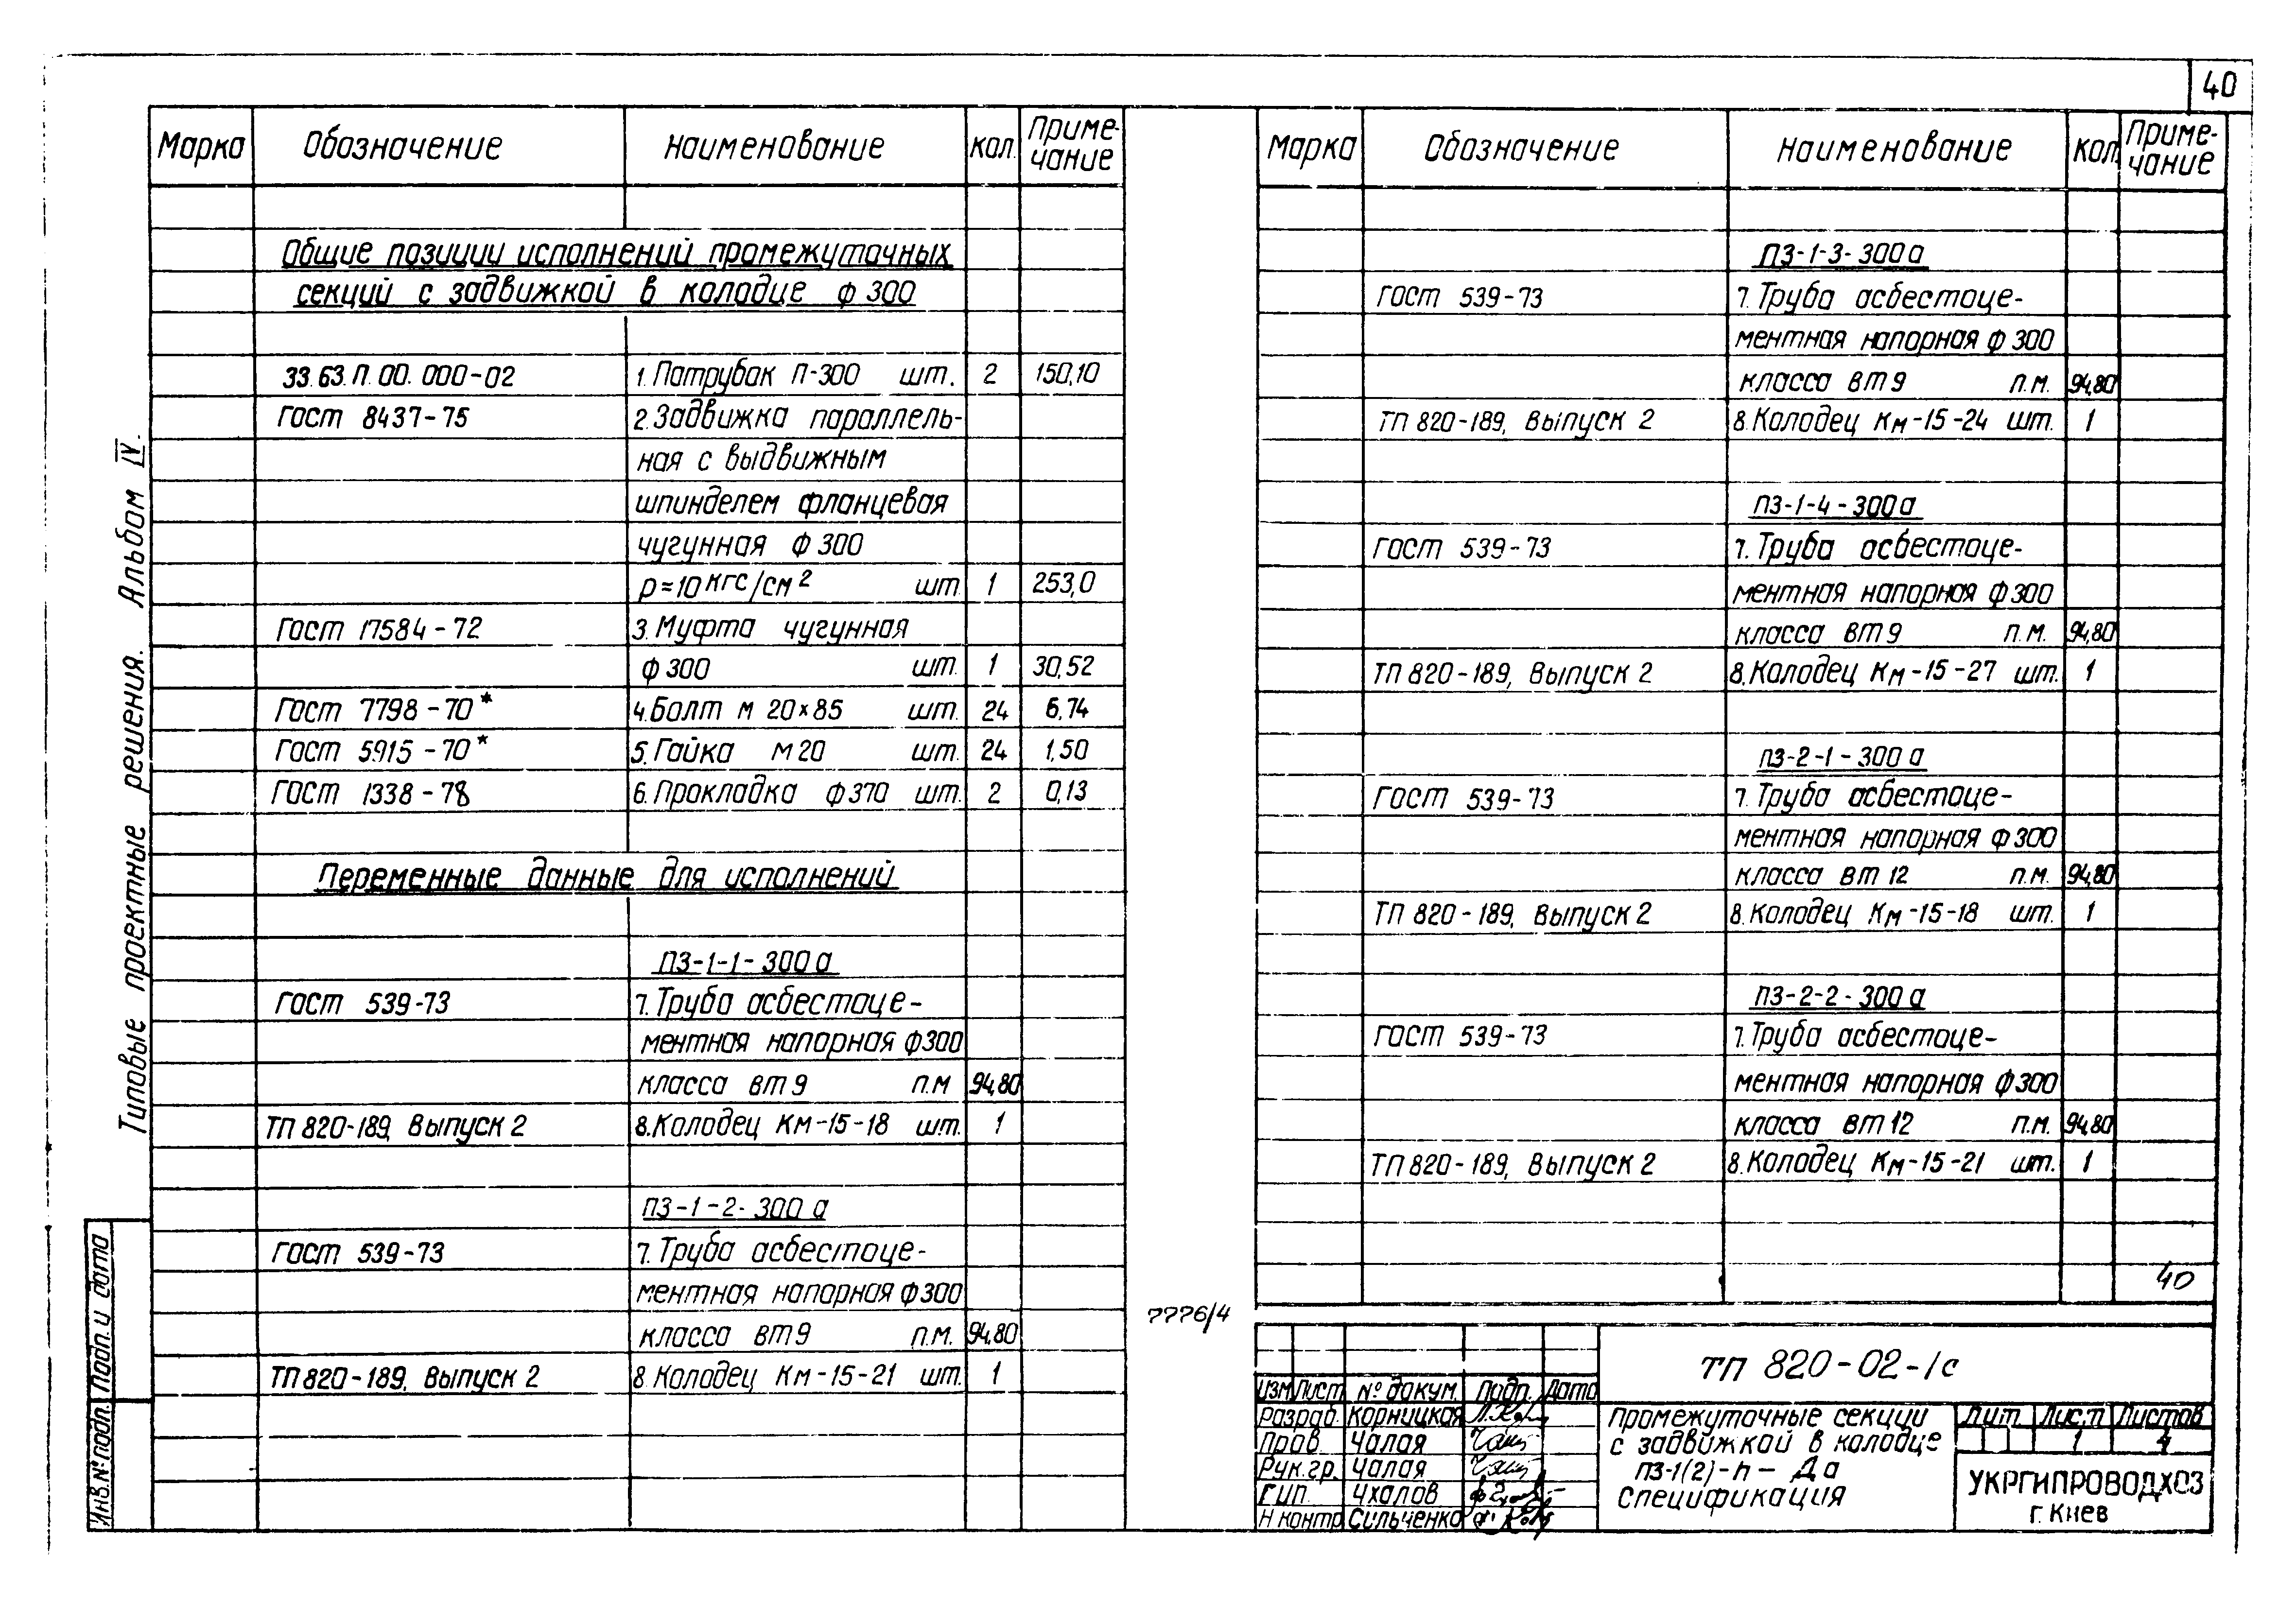 40
Типовые проектные решения. Альбом IV.
Марка Обозначение Наименование Кол. Приме-
чание
Общие позиции исполнений промежуточных
секций с задвижкой в колодце ф 300
33.63.П.00.000-02 1.Патрубок П-300 шт. 2 150,10
ГОСТ 8437-75 2.Задвижка параллель-
ная с выдвижным
шпинделем фланцевая
чугунная ф 300
р=10 кгс/см2 шт 1 253,0
ГОСТ 17584-72 3.Муфта чугунная
ф 300 шт. 1 30,52
ГОСТ 7798-70* 4.Болт М 20×85 шт. 24 6,74
ГОСТ 5915-70* 5.Гайка М20 шт. 24 1,50
ГОСТ 1338-78 6.Прокладка ф370 шт. 2 0,13
Переменные данные для исполнений
ПЗ-1-1-300а
ГОСТ 539-73 7.Труба асбестоце-
ментная напорная ф300
класса ВТ9 п.м 94,80
ТП 820-189, Выпуск 2 8.Колодец Км-15-18 шт. 1
ПЗ-1-2-300а
ГОСТ 539-73 7.Труба асбестоце-
ментная напорная ф300
класса ВТ9 п.м. 94,80
ТП 820-189, Выпуск 2 8.Колодец Км-15-21 шт. 1
Инв.№подл. Подп.и дата
7776/4
Марка Обозначение Наименование Кол. Приме-
чание
ПЗ-1-3-300а
ГОСТ 539-73 7.Труба асбестоце-
ментная напорная ф 300
класса ВТ9 п.м. 94,80
ТП 820-189, Выпуск 2 8.Колодец Км-15-24 шт. 1
ПЗ-1-4-300а
ГОСТ 539-73 7.Труба асбестоце-
ментная напорная ф 300
класса ВТ9 п.м. 94,80
ТП 820-189, Выпуск 2 8.Колодец Км-15-27 шт. 1
ПЗ-2-1-300а
ГОСТ 539-73 7.Труба асбестоце-
ментная напорная ф300
класса ВТ 12 п.м. 94,80
ТП 820-189, Выпуск 2 8.Колодец Км-15-18 шт. 1
ПЗ-2-2-300а
ГОСТ 539-73 7.Труба асбестоце-
ментная напорная ф300
класса ВТ12 п.м. 94,80
ТП 820-189, Выпуск 2 8.Колодец Км-15-21 шт. 1
40
ТП 820-02-1с
Изм Лист № докум. Подп. Дата
Разраб. Корницкая
Пров Чалая
Рук.гр. Чалая
ГИП Чхалов
Н контр Сильченко
Промежуточные секции
с задвижкой в колодце
ПЗ-1(2)-h-Да
Спецификация
Лит. Лист Листов
1 4
УКРГИПРОВОДХОЗ
г. Киев